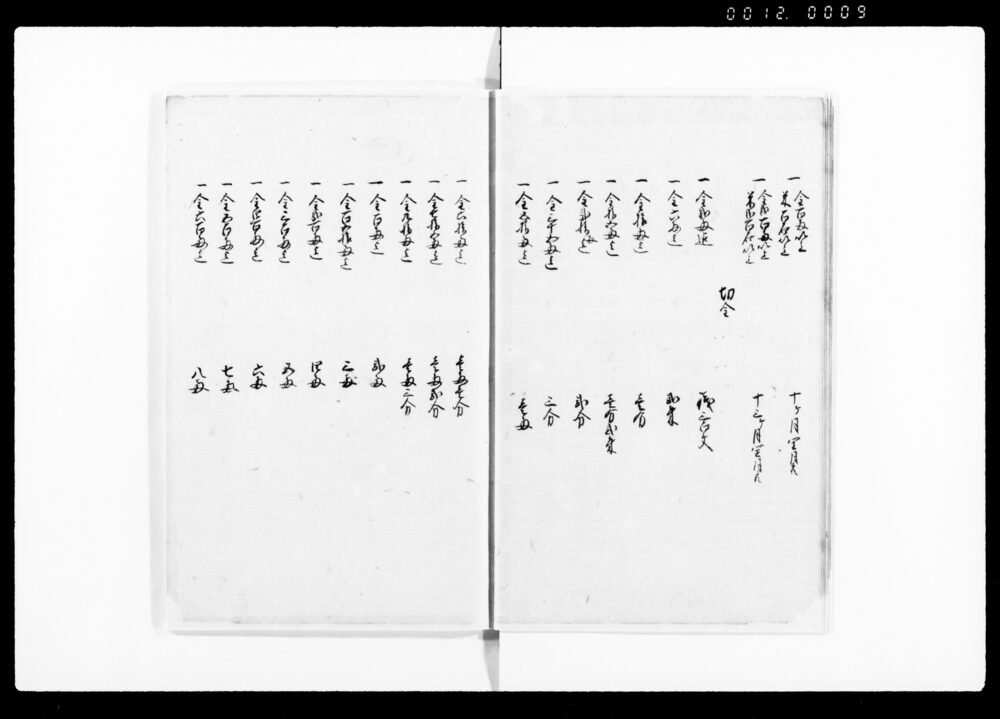 0012. 0009
一 金百両以上
米百石以上
十ヶ月 閏月共
一 金弐百両以上
米弐百石以上
十三ヶ月 閏月共
切金
一 金弐両迄
銭三百文
一 金六両迄
弐朱
一 金拾両迄
壱分
一 金拾六両迄
壱分弐朱
一 金弐拾両迄
弐分
一 金三十両迄
三分
一 金五拾両迄
壱両
一 金六拾両迄
壱両壱分
一 金七拾両迄
壱両弐分
一 金九拾両迄
壱両三分
一 金百両迄
弐両
一 金百五拾両迄
三両
一 金弐百両迄
四両
一 金三百両迄
五両
一 金四百両迄
六両
一 金五百両迄
七両
一 金六百両迄
八両